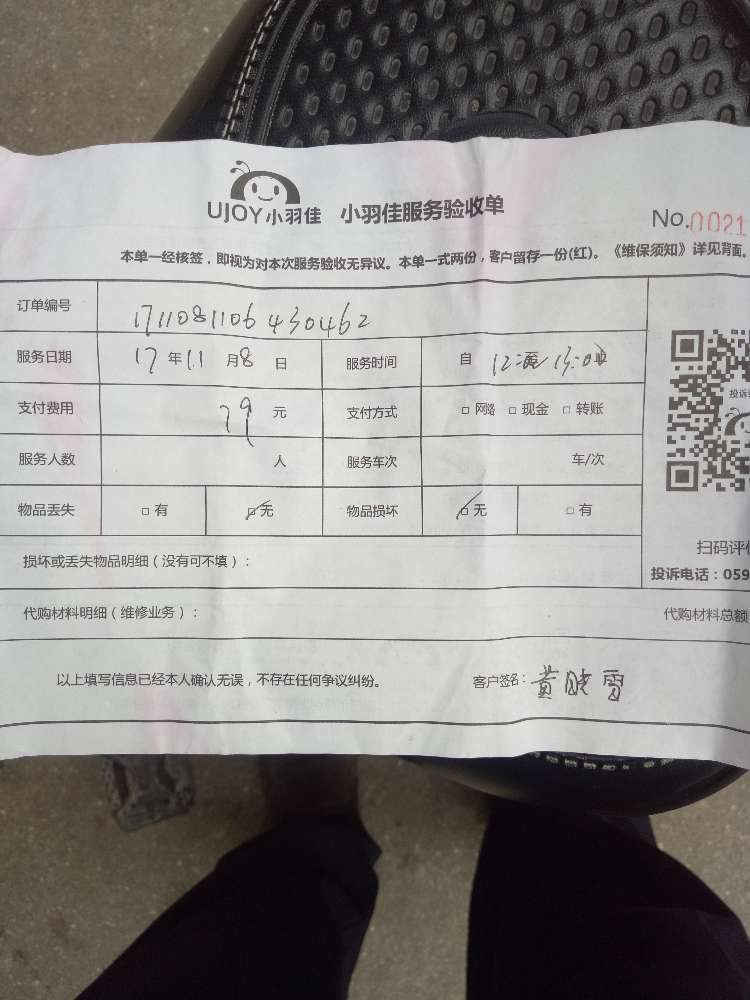 UJOY小羽佳 小羽佳服务验收单
No.0021
本单一经核签，即视为对本次服务验收无异议。本单一式两份，客户留存一份(红)。《维保须知》详见背面。
订单编号 1711081106430462
服务日期 17年11月8日 服务时间 自
支付费用 79元 支付方式 □网络 □现金 □转账
投诉
服务人数 人 服务车次 车/次
物品丢失 □有 □无 物品损坏 □无 □有
扫码评价
损坏或丢失物品明细（没有可不填）：
投诉电话：059
代购材料明细（维修业务）： 代购材料总额
以上填写信息已经本人确认无误，不存在任何争议纠纷。 客户签名：黄晓雷